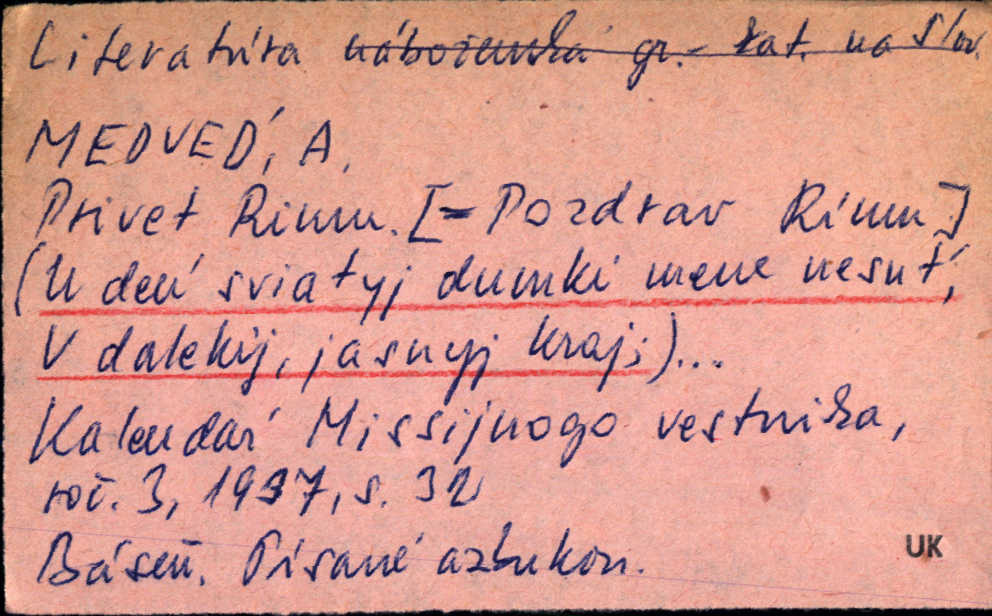 Literatúra náboženská gr.-kat. na Slov.
MEDVEĎ, A.
Privet Rimu. [= Pozdrav Rímu]
(U deń sviatyj dumki mene nesuť,
V dalekij, jasnyj kraj;)...
Kalendaŕ Missijnogo vestnika,
roč. 3, 1937, s. 32
Báseň. Písané azbukou.
UK